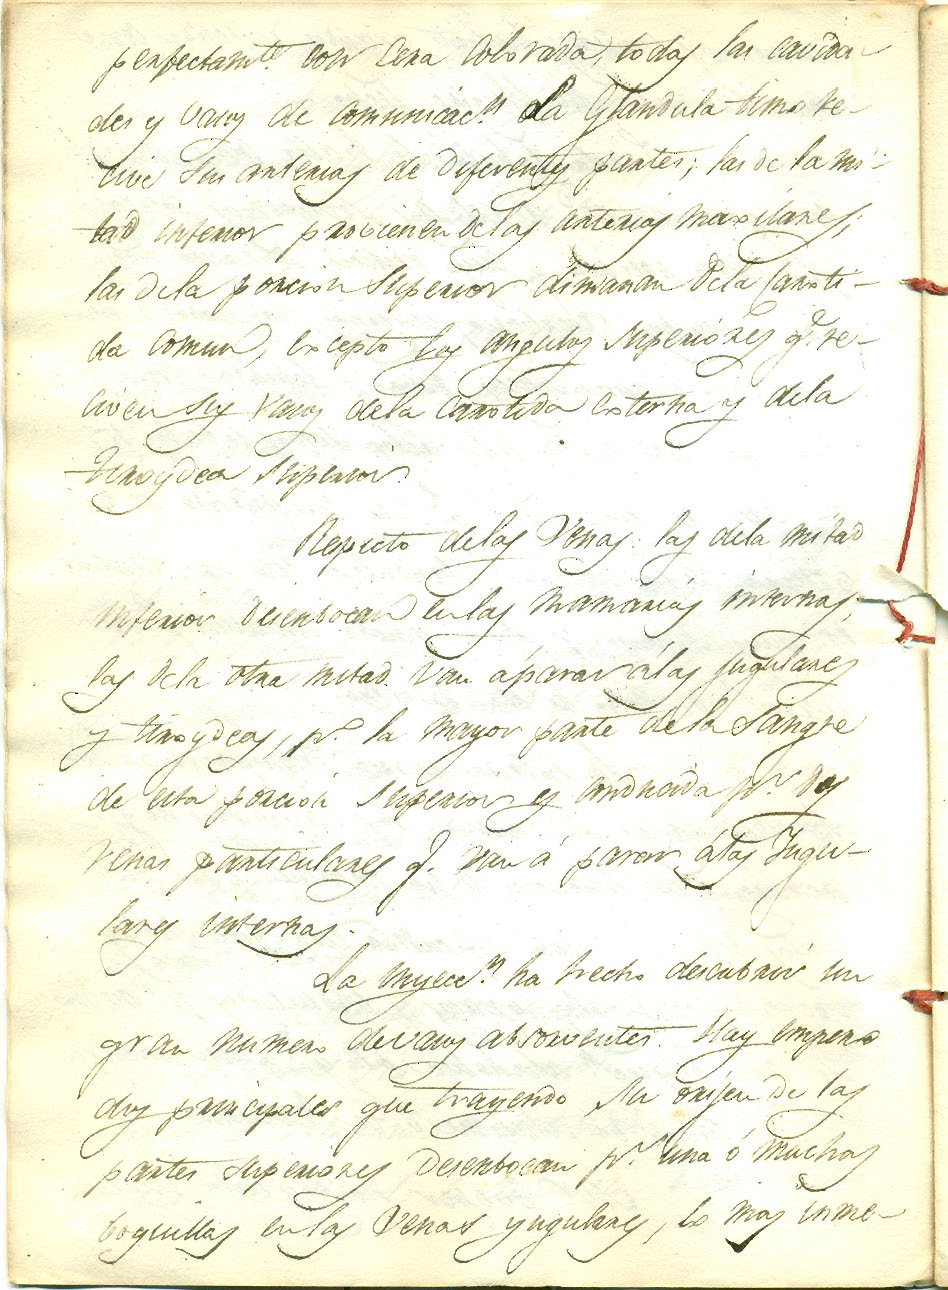 perfectamte. con cera colorada, todas las cavida-
des y vasos de comunicacn. La Glandula timo re-
cive sus arterias de diferentes partes; las de la mi-
tad inferior provienen de las arterias maxilares;
las de la porcion superior dimanan de la Caroti-
da comun, excepto los angulos superiores q. re-
civen sus vasos de la carotida externa y de la
tiroydea superior.
Repecto de las Venas. las de la mitad
inferior desenbocan en las mamarias internas,
las de la otra mitad van á parar á las jugulares
y tiroydeas, pr. la mayor parte de la sangre
de esta porcion superior es conducida pr. dos
venas particulares q. van á parar á las Jugu-
lares internas.
La inyeccn. ha hecho descubrir un
gran numero de vasos absorventes. Hay empero
dos principales que trayendo su orijen de las
partes superiores desenbocan pr. una ó muchas
boquillas en las Venas yugulares, lo mas inme-